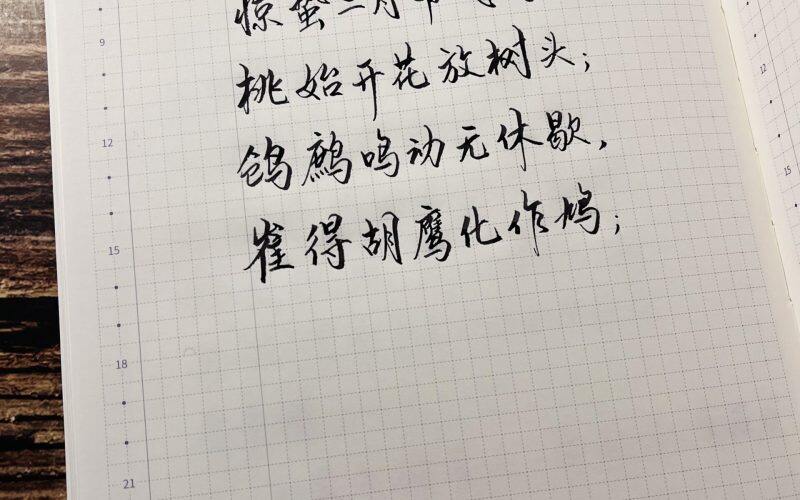 惊蛰二月节
桃始开花放树头；
鸧鹒鸣动无休歇，
催得胡鹰化作鸠；
9
12
15
18
21
12
15